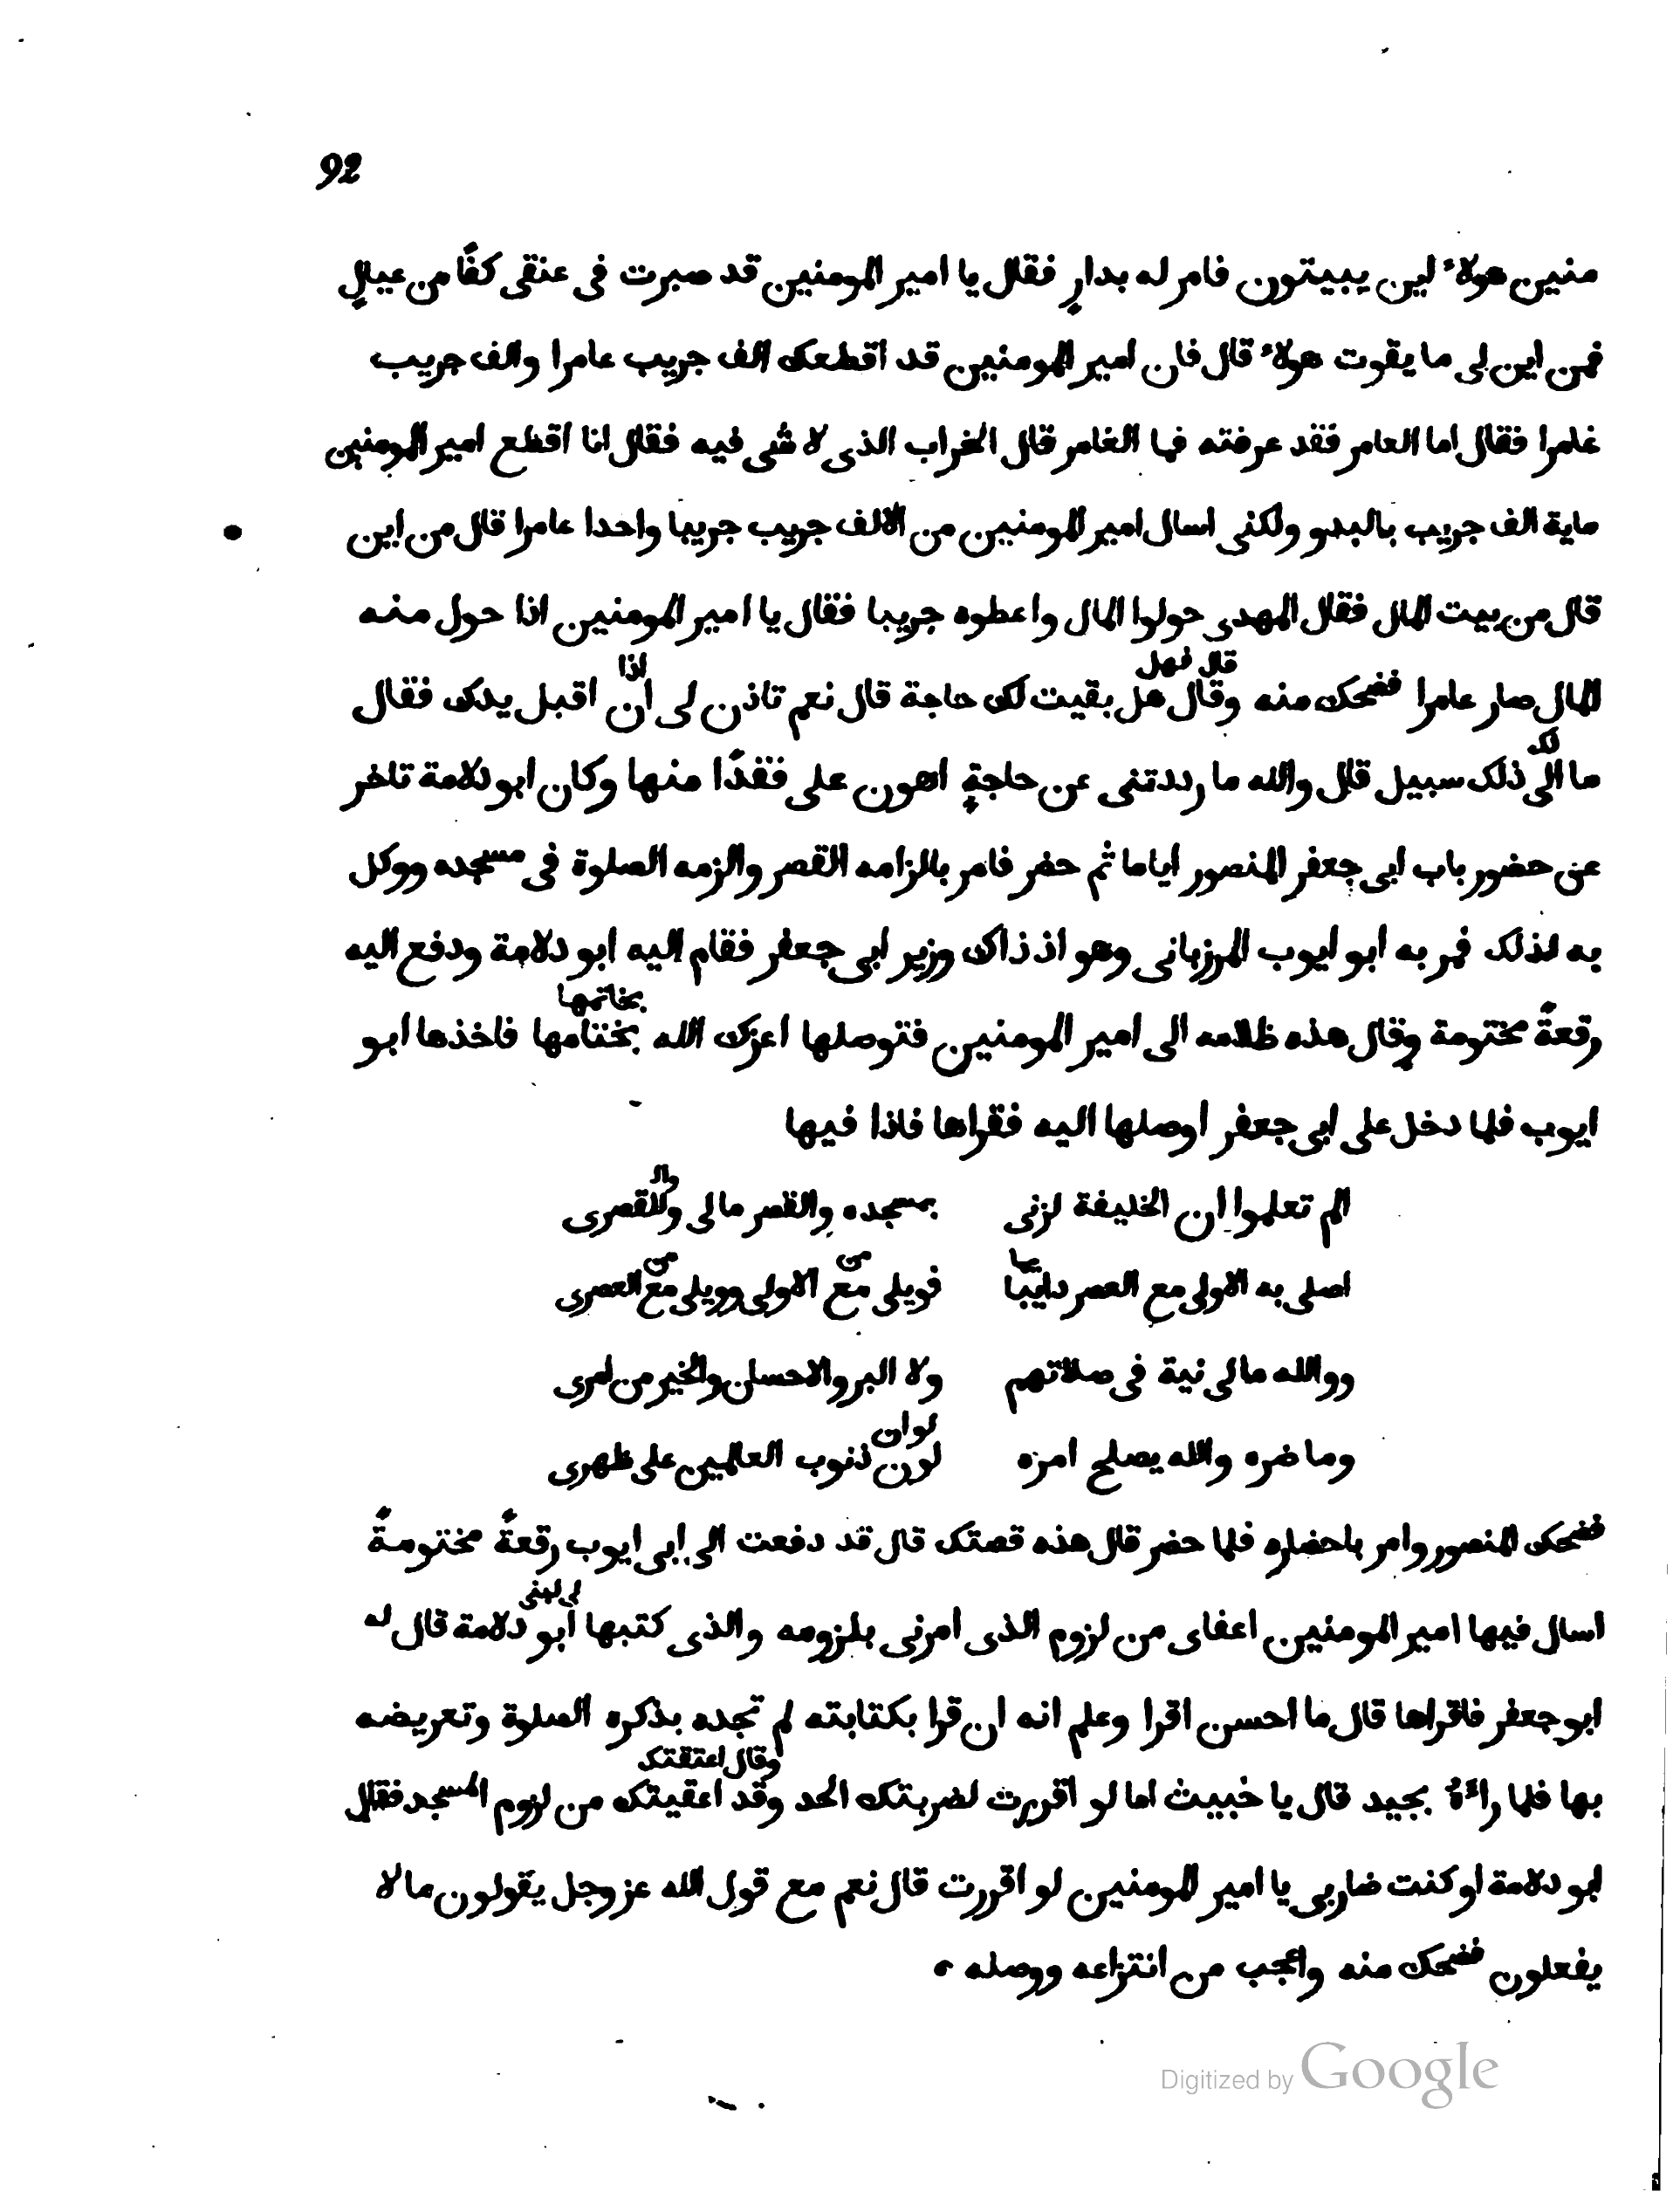 92
منين هولاء لين يبيتون فامر له بدارٍ فقال يا امير المومنين قد صبرت فى عنقى كفًا من عيالٍ
فمن اين لى ما يقوت هولاء قال فان امير المومنين قد اقطعك الف جريب عامرا والف جريب
غامرا فقال اما العامر فقد عرفته فما الغامر قال الخراب الذى لا شى فيه فقال انا اقطع امير المومنين
ماية الف جريب بالبدو ولكنى اسال امير المومنين من الالف جريب جريبا واحدا عامرا قال من اين
قال من بيت المال فقال المهدى حولوا المال واعطوه جريبا فقال يا امير المومنين اذا حول منه
قال فهل اذا
المال صار عامرا فضحك منه وقال هل بقيت لك حاجة قال نعم تاذن لى ان اقبل يدك فقال
لك
ما الى ذلك سبيل قال والله ما رددتنى عن حاجةٍ اهون على فقدًا منها وكان ابو دلامة تاخر
عن حضور باب ابى جعفر المنصور اياما ثم حضر فامر بالزامه القصر والزمه الصلوة فى مسجده ووكل
به لذلك فمر به ابو ايوب المرزبانى وهو اذ ذاك وزير ابى جعفر فقام اليه ابو دلامة ودفع اليه
بخاتمها
رقعةً مختومة وقال هذه ظلامه الى امير المومنين فتوصلها اعزك الله بختامها فاخذها ابو
ايوب فلما دخل على ابى جعفر اوصلها اليه فقراها فاذا فيها
وال
الم تعلموا ان الخليفة لزنى بمسجده والقصر مالى وللقصرى
من من
اصلى به الاولى مع العصر دايبًا فويلى مع الاولى وويلى مع العصرى
ووالله مالى نية فى صلاتهم ولا البر والاحسان والخير من امرى
لو ان
وما ضره والله يصلح امره لون ذنوب العالمين على ظهرى
فضحك المنصور وامر باحضاره فلما حضر قال هذه قصتك قال قد دفعت الى ابى ايوب رقعةً مختومةً
اسال فيها امير المومنين اعفاى من لزوم الذى امرنى بلزومه والذى كتبها ابو دلامة قال له
ابو جعفر فاقراها قال ما احسن اقرا وعلم انه ان قرا بكتابته لم تجده بذكره الصلوة وتعريضه
وقال اعتقتك
بها فلما راءهُ بجيد قال يا خبيث اما لو اقررت لضربتك الحد وقد اعقيتك من لزوم المسجد فقال
ابو دلامة او كنت ضاربى يا امير المومنين لو اقررت قال نعم مع قول الله عز وجل يقولون ما لا
يفعلون فضحك منه واعجب من انتزاعه ووصله ه
Digitized by Google